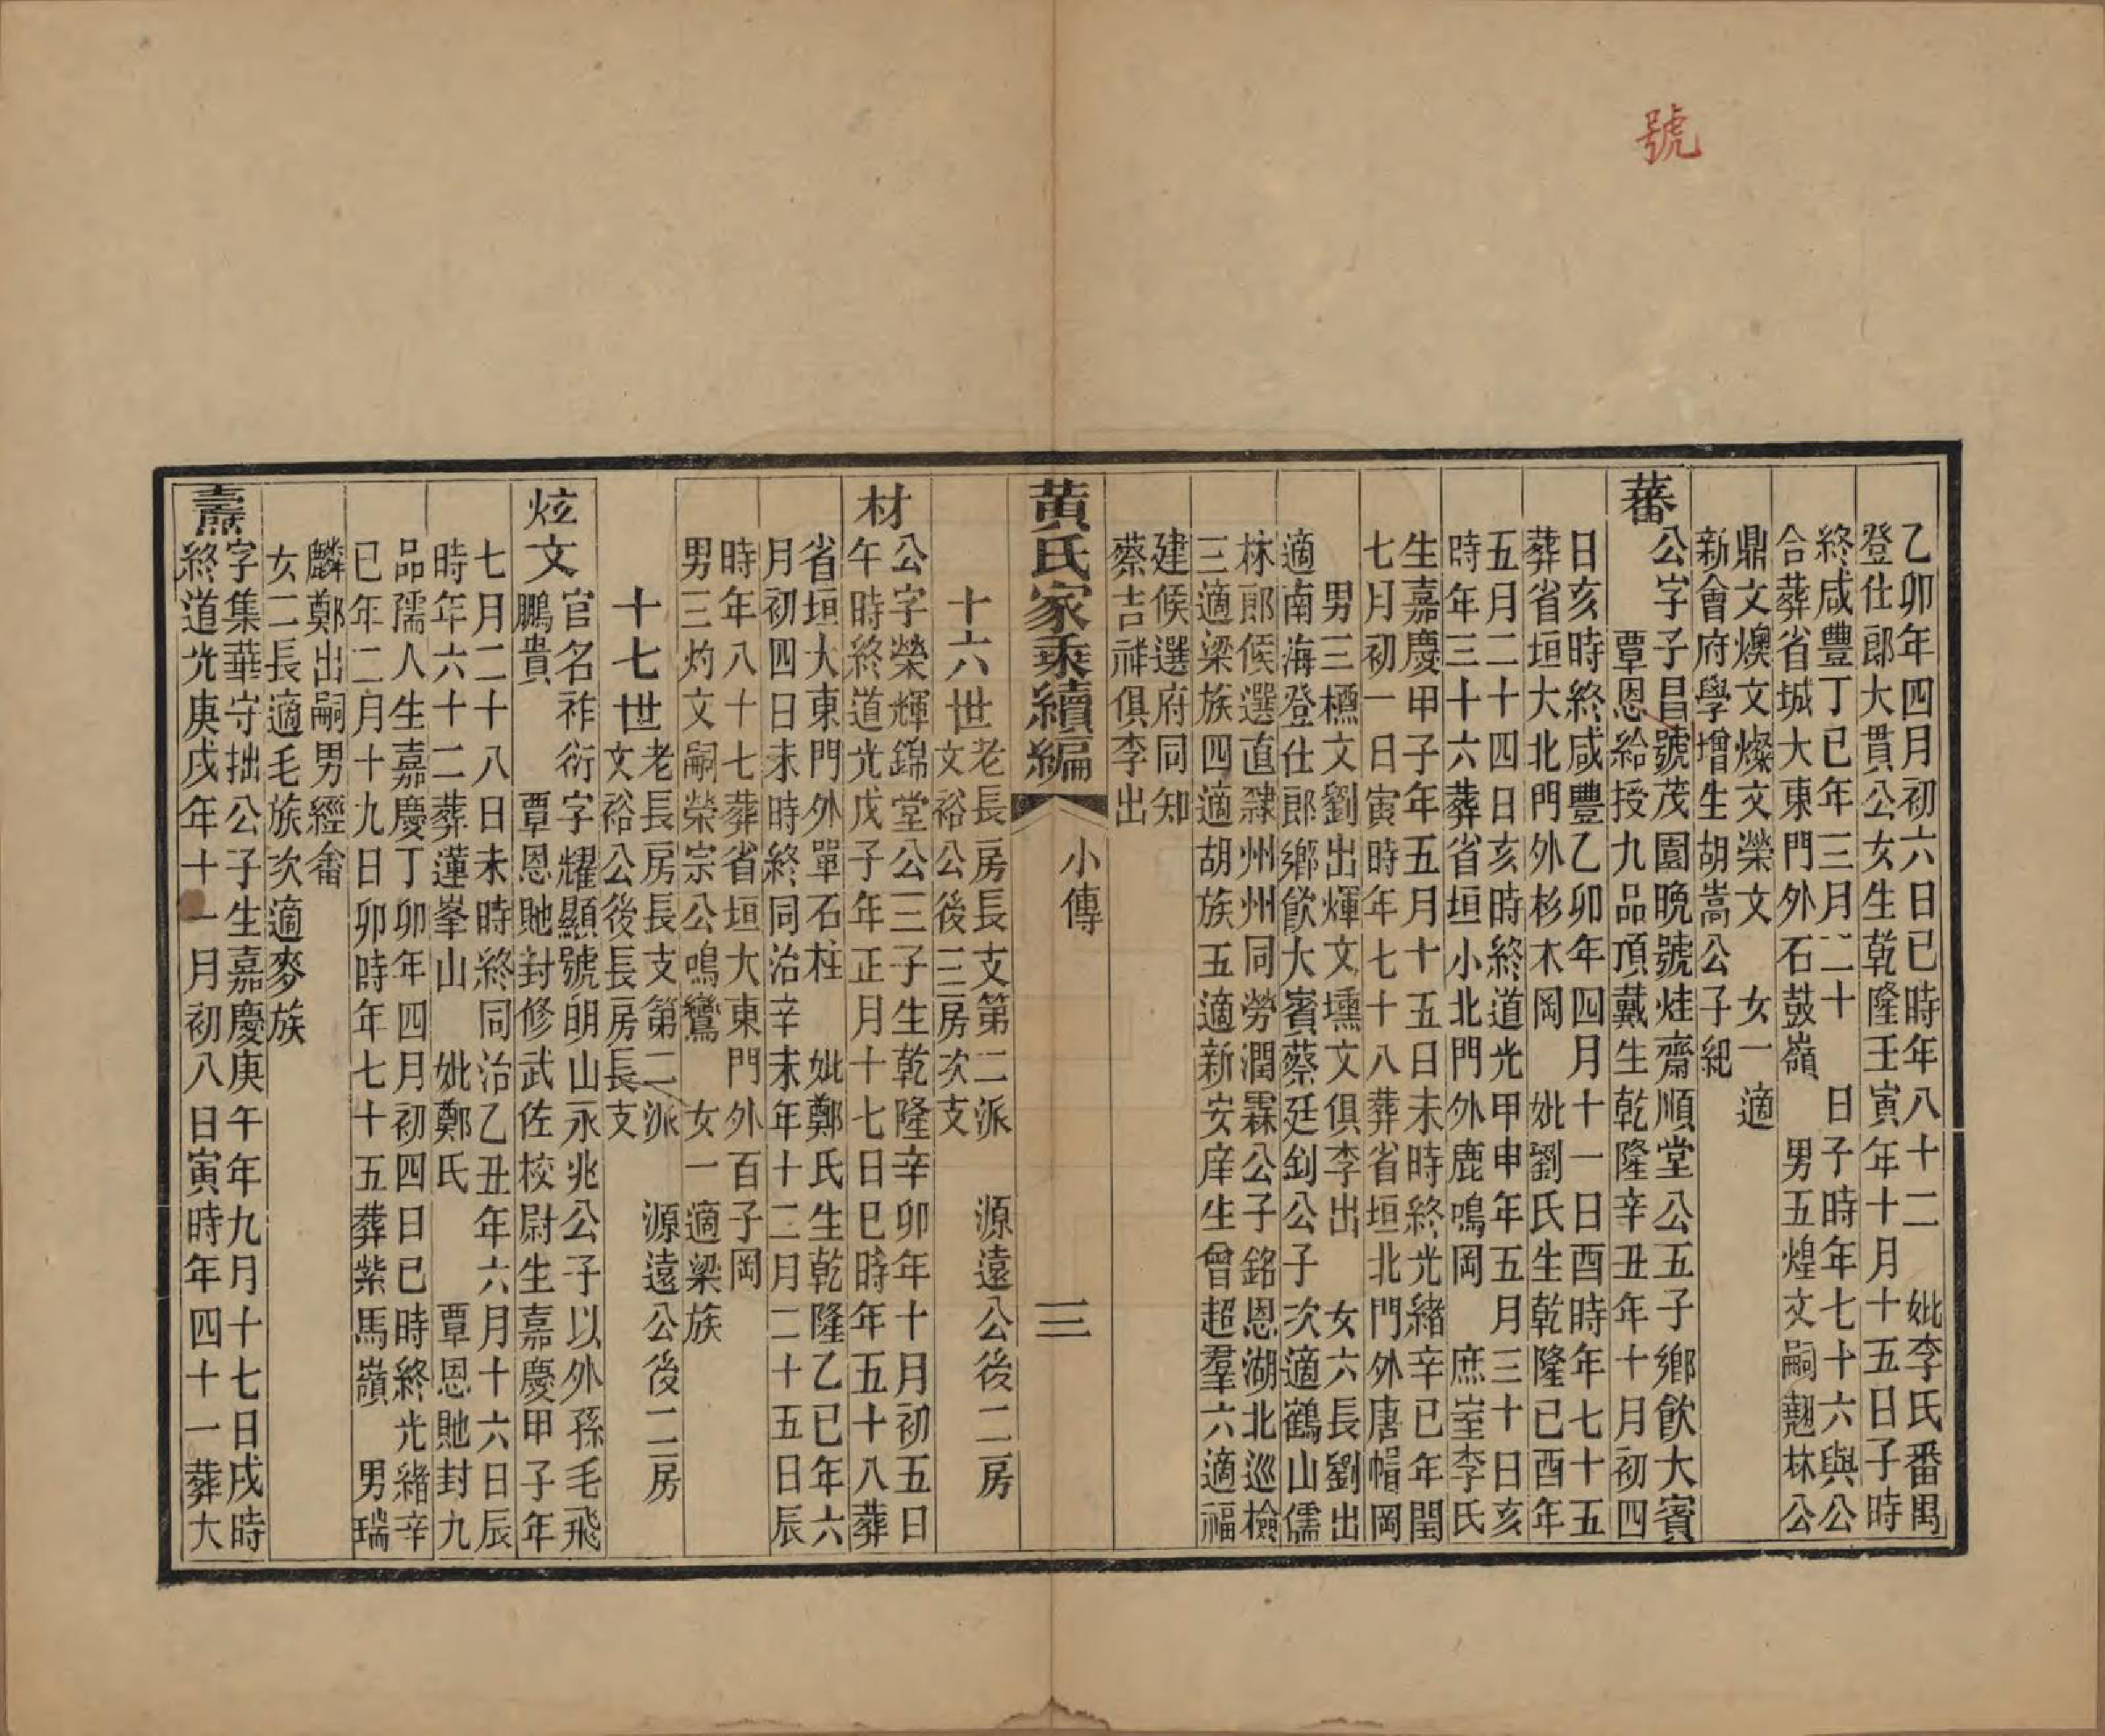 號
乙卯年四月初六日巳時年八十二　妣李氏番禺
登仕郎大貫公女生乾隆壬寅年十月十五日子時
終咸豐丁巳年三月二十　日子時年七十六與公
合葬省城大東門外石鼓嶺　男五煌文嗣翹林公
鼎文燠文燦文榮文　女一適
新會府學增生胡嵩公子紀
蕃
公字子昌號茂園晚號烓齋順堂公五子鄉飲大賓
覃恩給授九品頂戴生乾隆辛丑年十月初四
日亥時終咸豐乙卯年四月十一日酉時年七十五
葬省垣大北門外杉木岡　妣劉氏生乾隆己酉年
五月二十四日亥時終道光甲申年五月三十日亥
時年三十六葬省垣小北門外鹿鳴岡　庶室李氏
生嘉慶甲子年五月十五日未時終光緒辛巳年閏
七月初一日寅時年七十八葬省垣北門外唐帽岡
男三櫺文劉出煇文壎文俱李出　女六長劉出
適南海登仕郎鄉飲大賓蔡廷釗公子　次適鶴山儒
林郎候選直隸州州同勞潤霖公子銘恩湖北巡檢
三適梁族四適胡族五適新安庠生曾超羣六適福
建候選府同知
蔡吉祥俱李出
黃氏家乘續編
小傳
三
十六世
老長房長支第二派　源遠公後二房
文裕公後三房次支
材
公字榮輝錦堂公三子生乾隆辛卯年十月初五日
午時終道光戊子年正月十七日巳時年五十八葬
省垣大東門外單石柱　妣鄭氏生乾隆乙巳年六
月初四日未時終同治辛未年十二月二十五日辰
時年八十七葬省垣大東門外百子岡
男三灼文嗣榮宗公鳴鸞　女一適梁族
十七世
老長房長支第二派　源遠公後二房
文裕公後長房長支
炫文
官名祚衍字耀顯號明山永兆公子以外孫毛飛
鵬貴　覃恩貤封修武佐校尉生嘉慶甲子年
七月二十八日未時終同治乙丑年六月十六日辰
時年六十二葬蓮峯山　妣鄭氏　覃恩貤封九
品孺人生嘉慶丁卯年四月初四日巳時終光緒辛
巳年二月十九日卯時年七十五葬紫馬嶺　男瑞
麟鄭出嗣男經畬
女二長適毛族次適麥族
燾
字集華守拙公子生嘉慶庚午年九月十七日戌時
終道光庚戌年十一月初八日寅時年四十一葬大